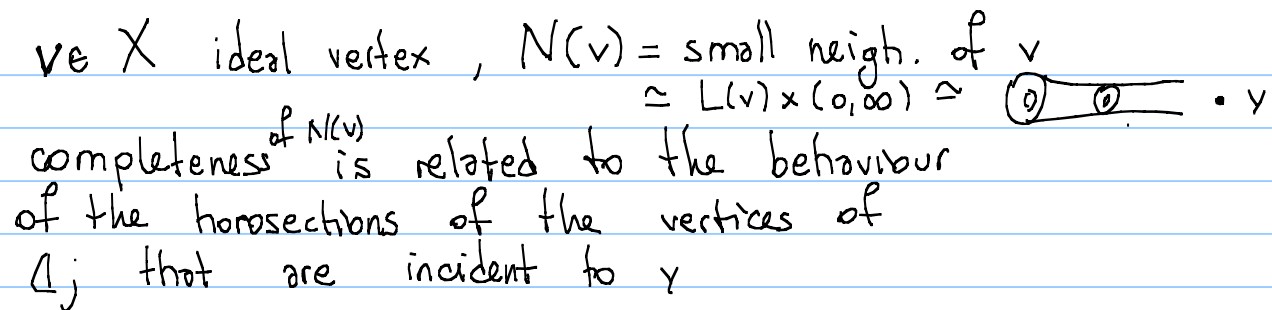 v∈ X ideal vertex, N(v) = small neigh. of v
≃ L(v) × (0,∞) ≃ · v
completeness of N(v) is related to the behaviour
of the horosections of the vertices of
Δj that are incident to v